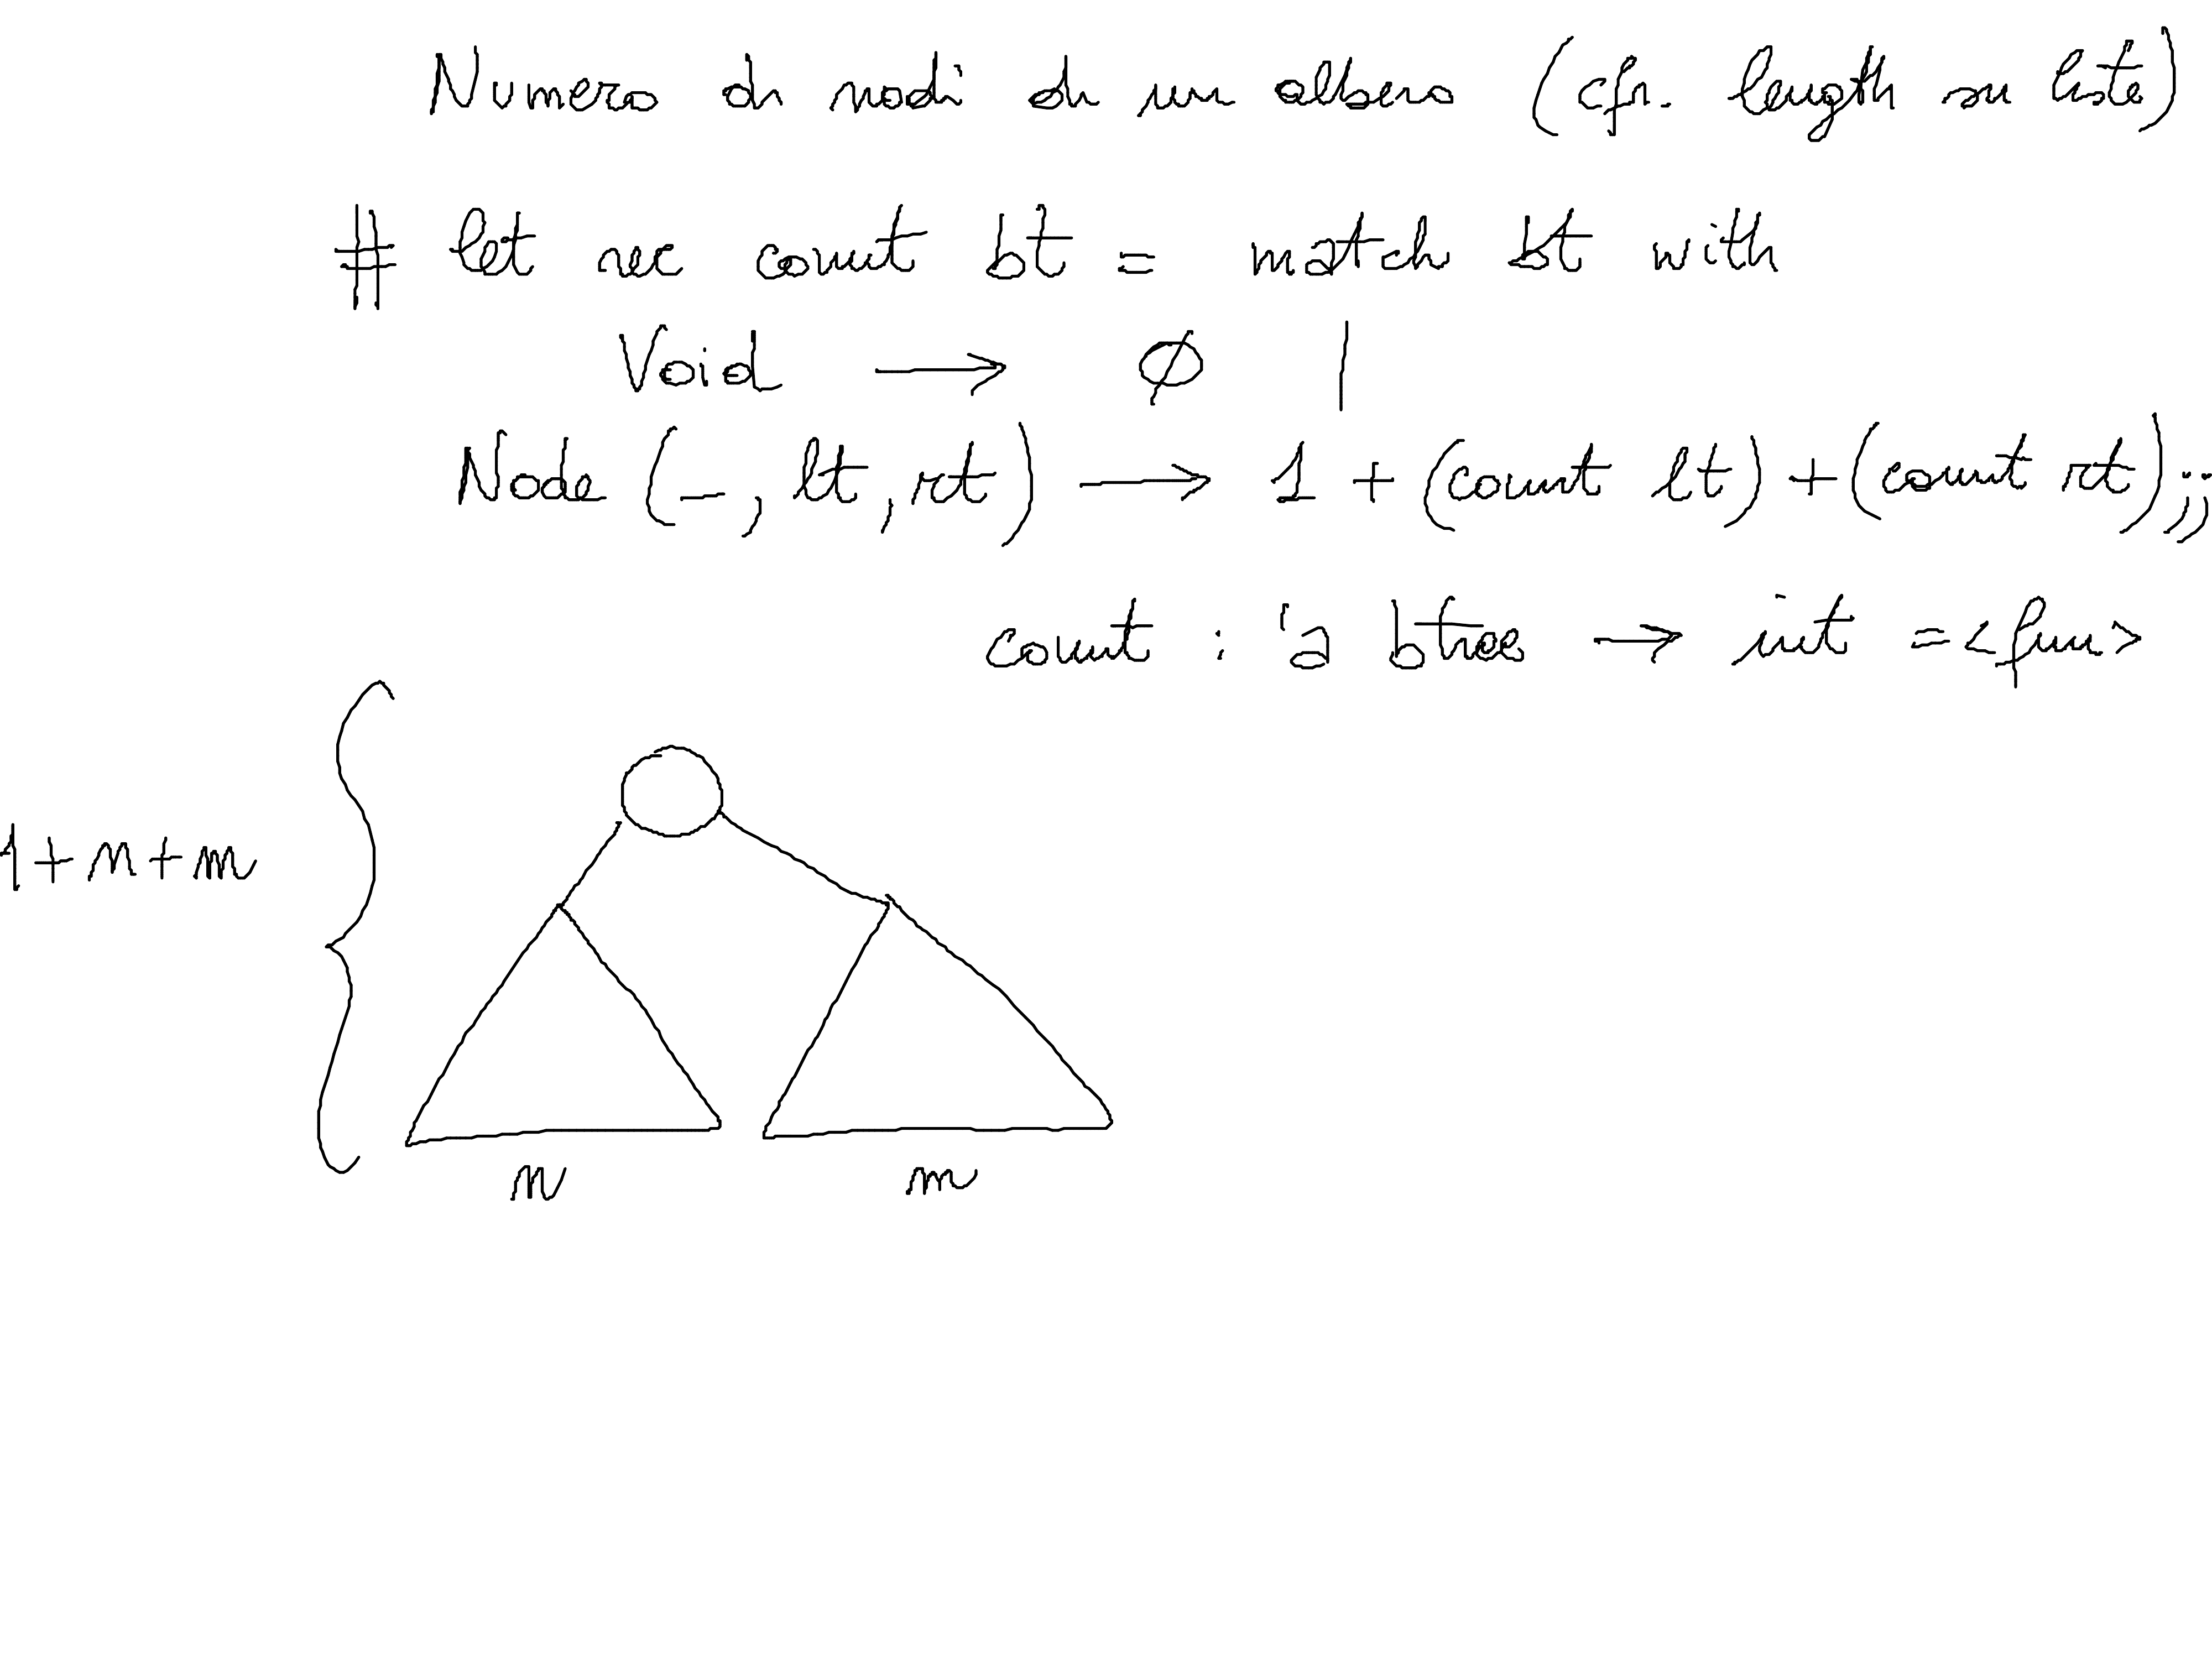 Numero di nodi di un albero (cfr. length su liste)
# let rec count bt = match bt with
Void → 0 |
Node (_, lt, rt) → 1 + (count lt) + (count rt);;
count : 'a btree → int = <fun>
1+n+m
n m